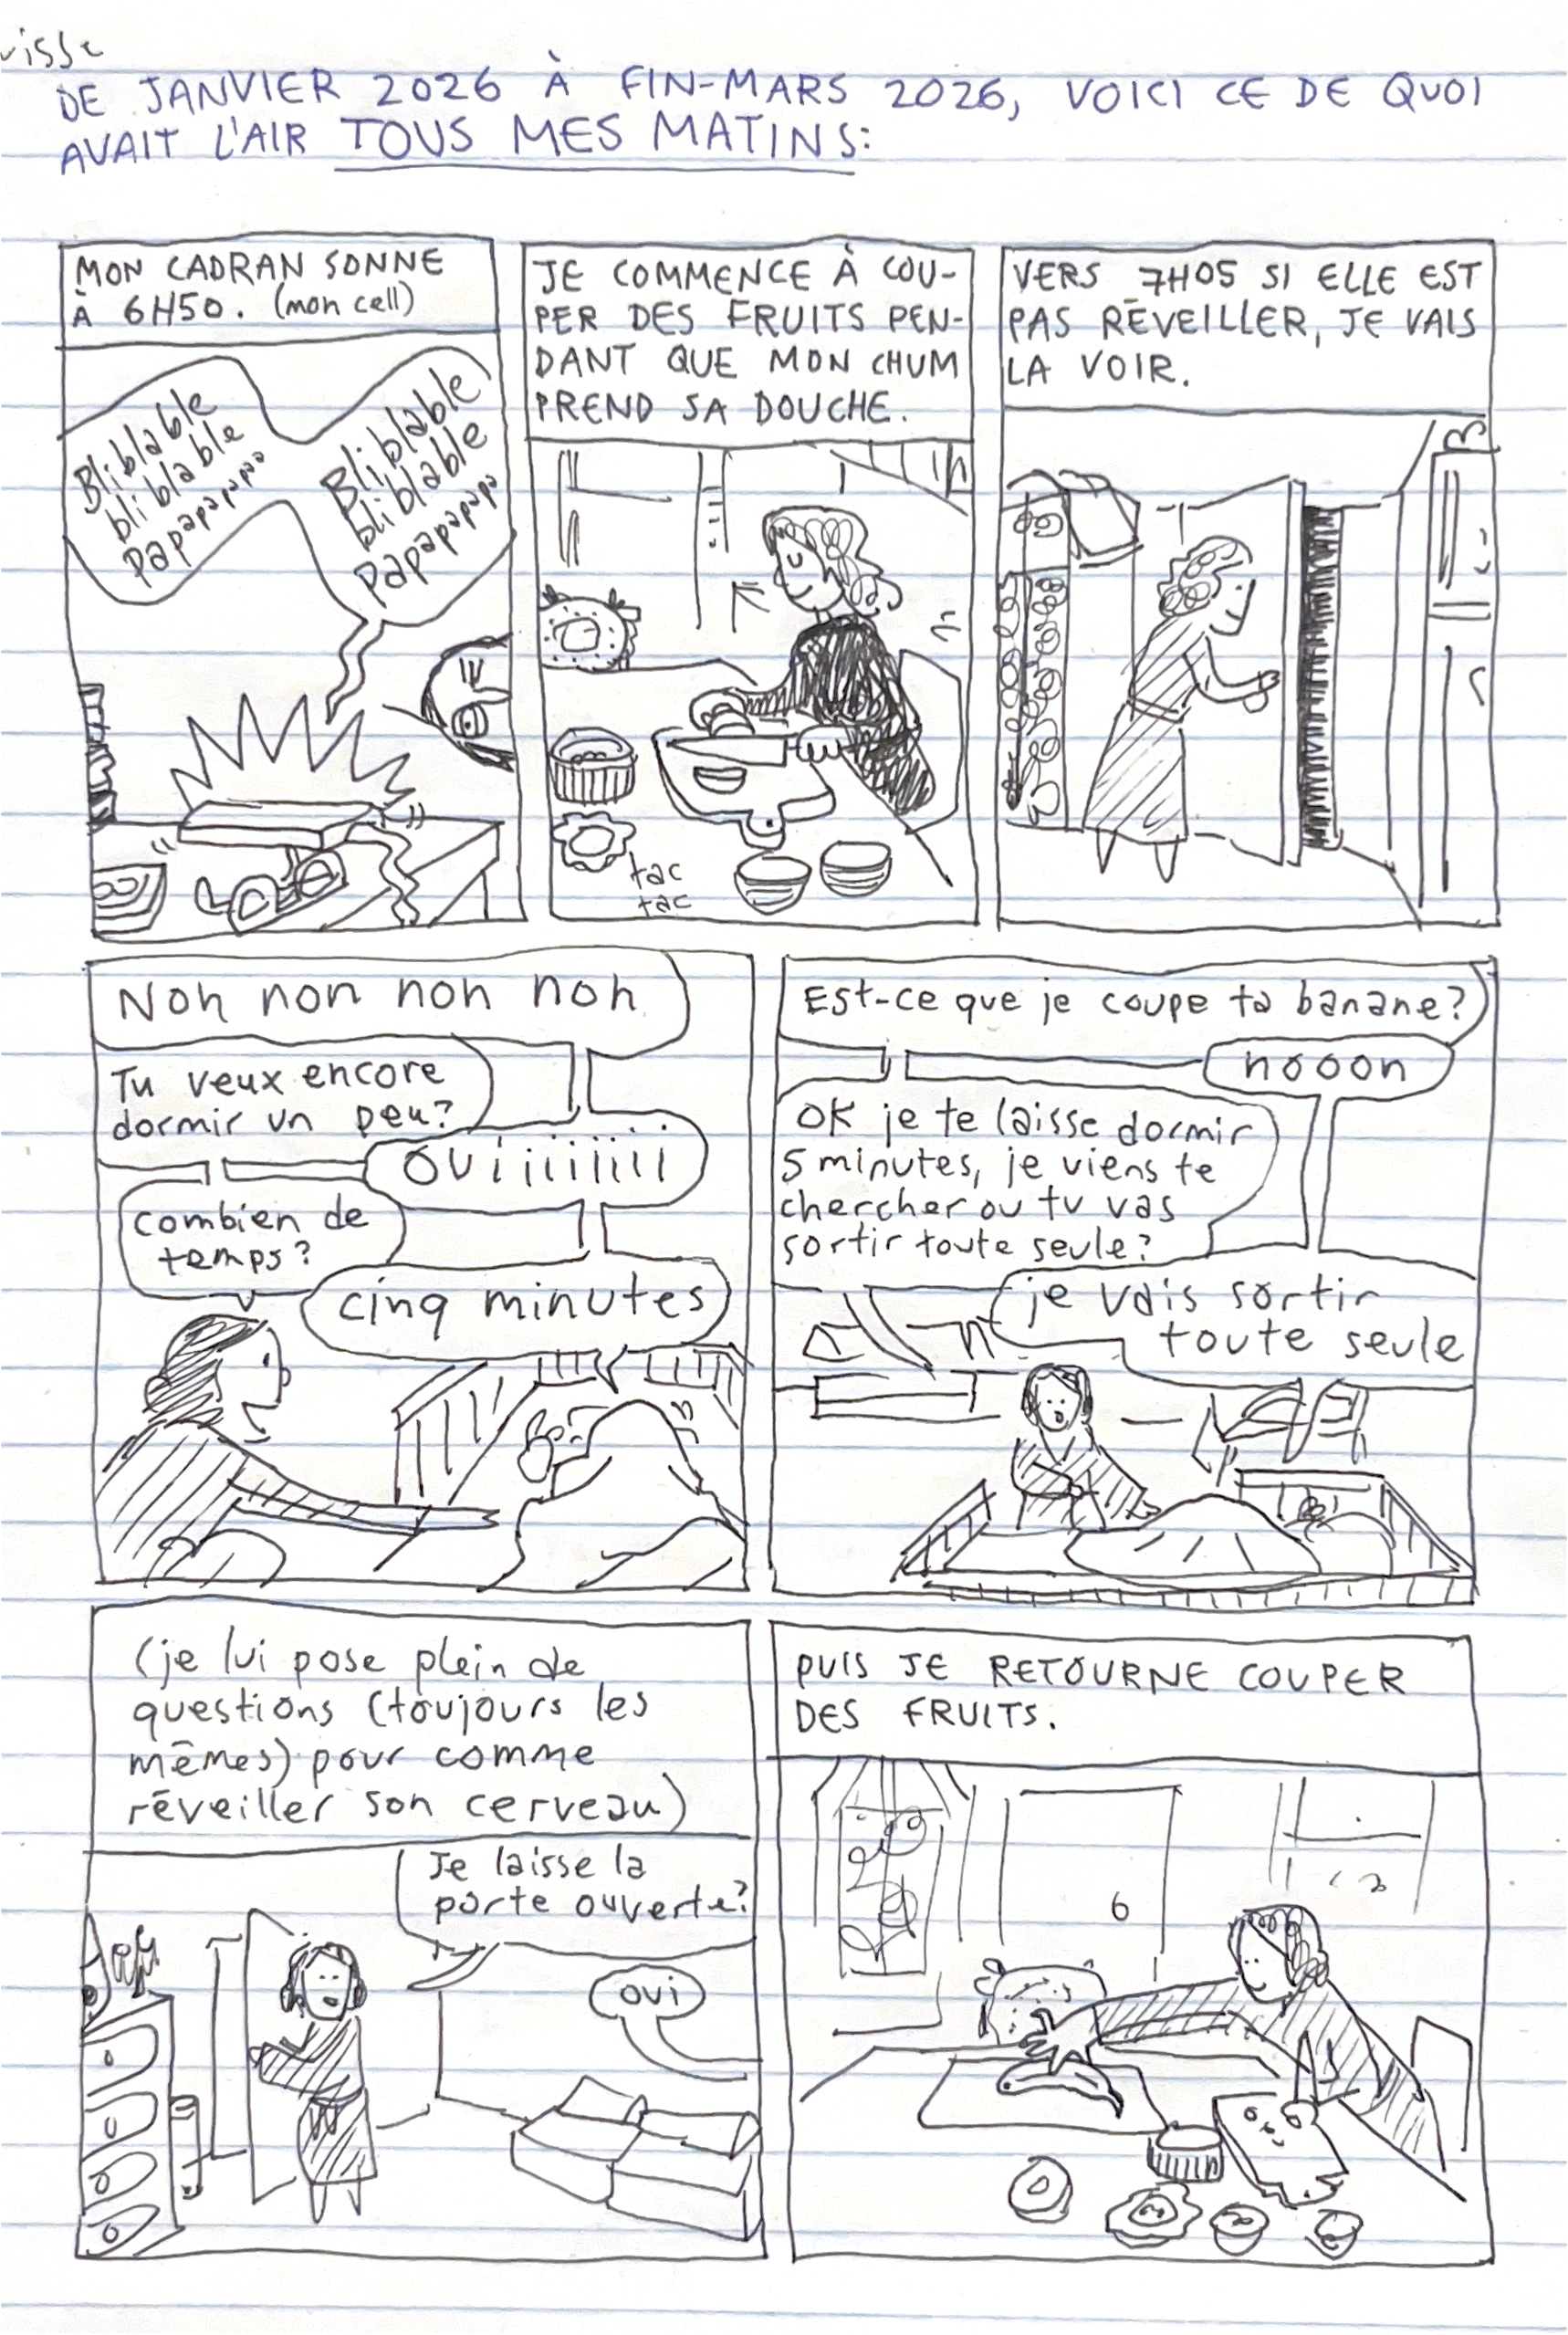 DE JANVIER 2026 À FIN-MARS 2026, VOICI CE DE QUOI
AVAIT L'AIR TOUS MES MATINS:
MON CADRAN SONNE
À 6H50. (mon cell)
Bliblable
bliblable
papapapapa
Bliblable
bliblable
papapapapa
JE COMMENCE À COU-
PER DES FRUITS PEN-
DANT QUE MON CHUM
PREND SA DOUCHE.
tac
tac
VERS 7H05 SI ELLE EST
PAS RÉVEILLER, JE VAIS
LA VOIR.
Non non non non
Tu veux encore
dormir un peu?
OUiiiiiiii
combien de
temps?
cinq minutes
Est-ce que je coupe ta banane?
nooon
OK je te laisse dormir
5 minutes, je viens te
chercher ou tu vas
sortir toute seule?
je vais sortir
toute seule
(je lui pose plein de
questions (toujours les
mêmes) pour comme
réveiller son cerveau)
Je laisse la
porte ouverte?
oui
PUIS JE RETOURNE COUPER
DES FRUITS.